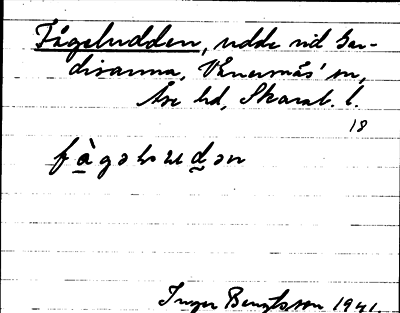 Fågeludden, udde vid Gar-
disanna, Vänersnäs' sn,
Åse hd, Skarab. l.
18
fà̱gəludən
Inger Bengtsson 1941.